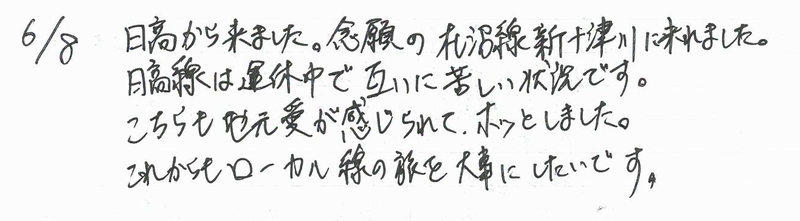 6/8 日高から来ました。念願の札沼線新十津川に来れました。
日高線は運休中で互いに苦しい状況です。
こちらも地元愛が感じられて、ホッとしました。
これからもローカル線の旅を大事にしたいです。